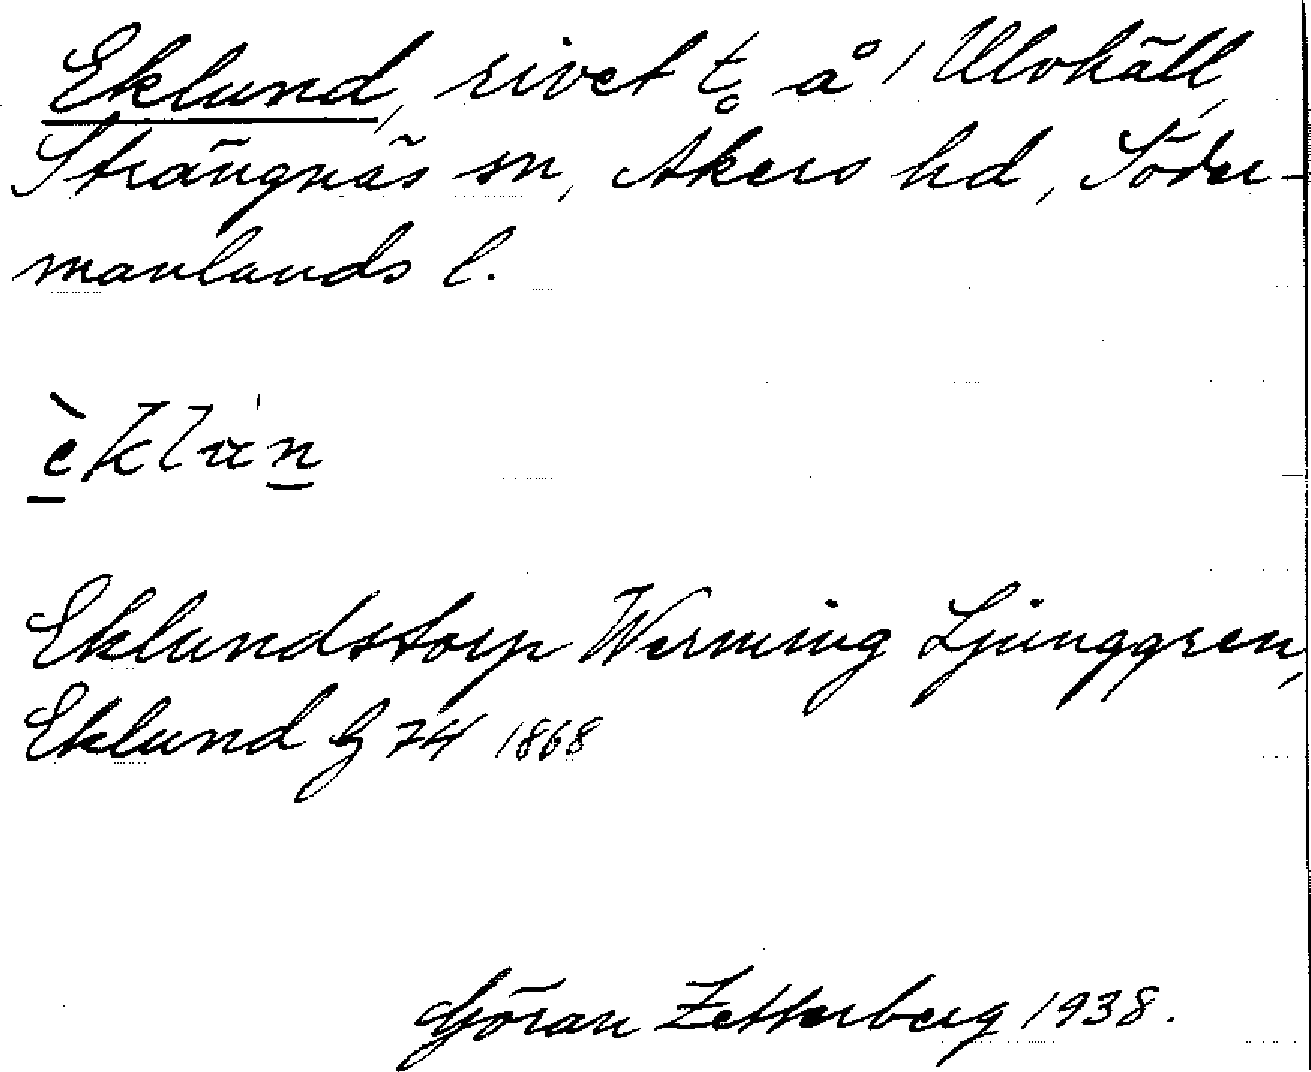 Eklund, rivet t. å 1 Ulvhäll,
Strängnäs sn, Åkers hd, Söder-
manlands l.
èklun
Eklundstorp Werming Ljunggren,
Eklund G 74 1868
Göran Zetterberg 1938.